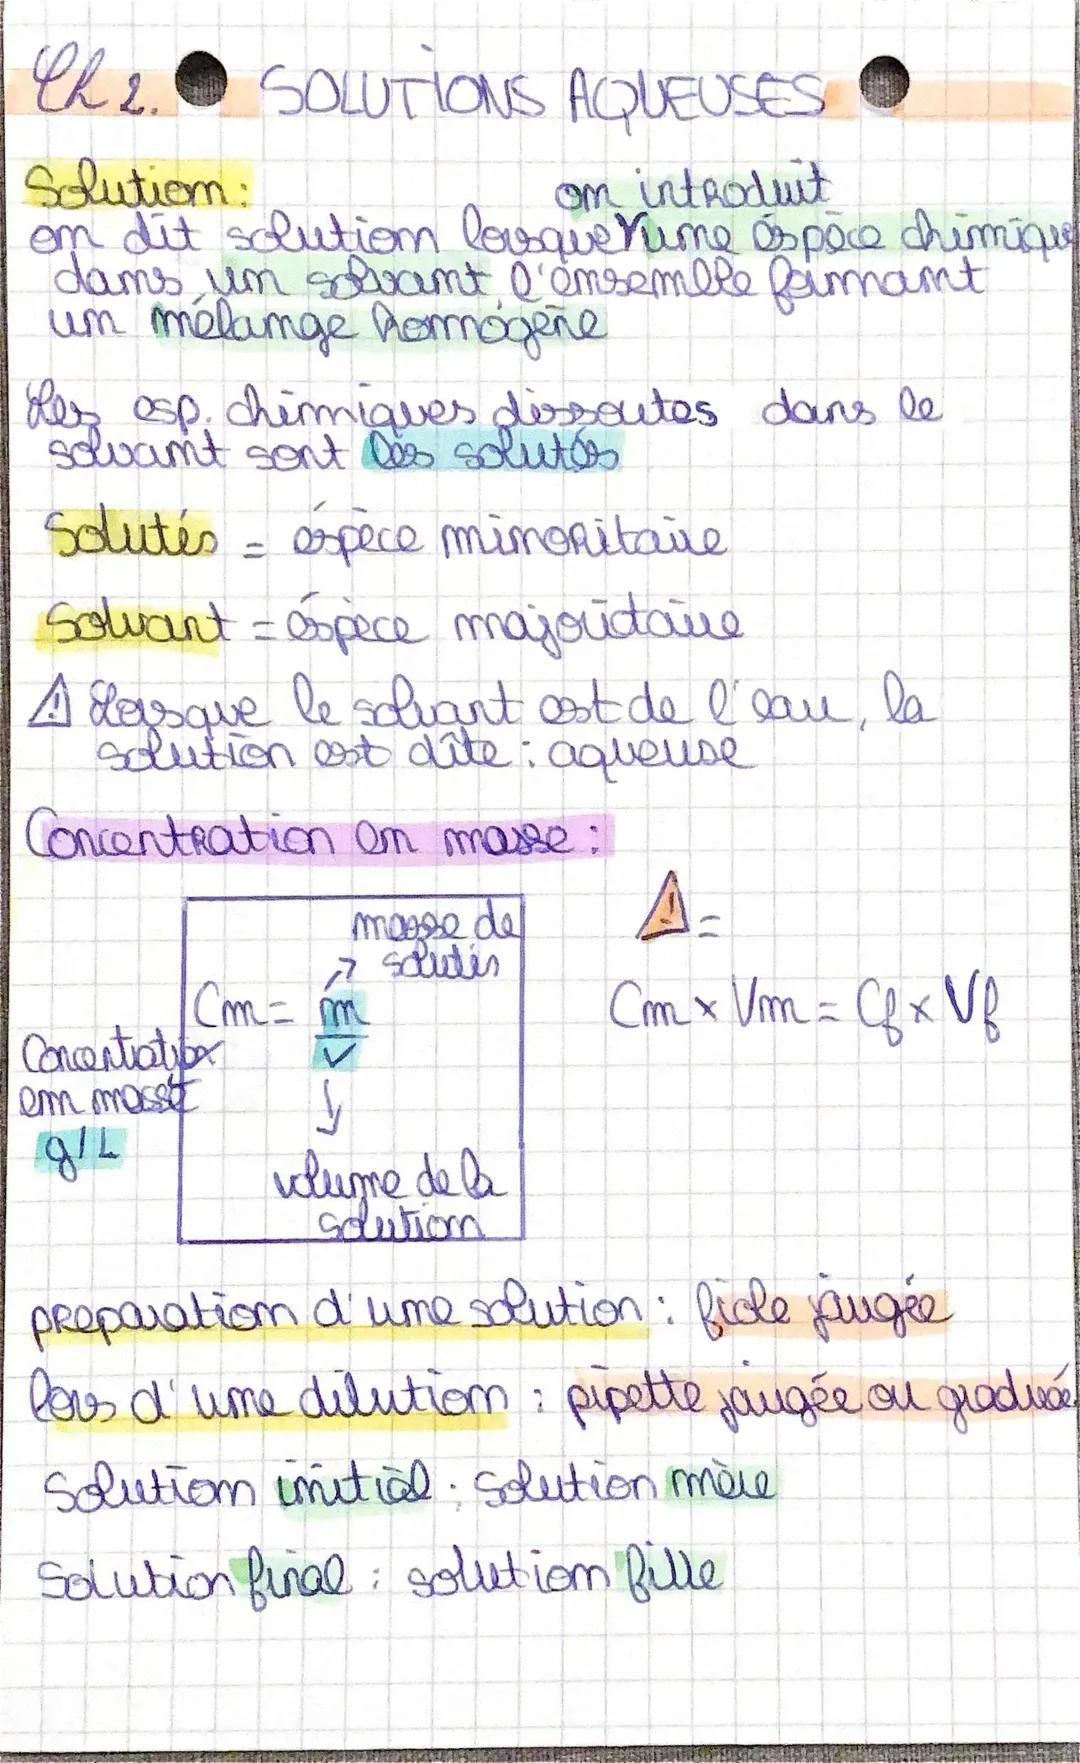 Ch 2. SOLUTIONS AQUEUSES
Solution :
on introduit
on dit solution lorsque une éspèce chimique
dans un solvant, l'ensemble formant
un mélange homogène
Les esp. chimiques dissoutes dans le
solvant sont les solutés
Solutés = éspèce minoritaire
Solvant = éspèce majoritaire
⚠ Lorsque le solvant est de l'eau, la
solution est dîte : aqueuse
Concentration en masse :
masse de
solutés
Cm = m
v
Concentration
en masse
g/L
volume de la
solution
⚠ =
Cm × Vm = Cf × Vf
preparation d'une solution : fiole jaugée
lors d'une dilution : pipette jaugée ou graduée
Solution initial : solution mère
Solution final : solution fille